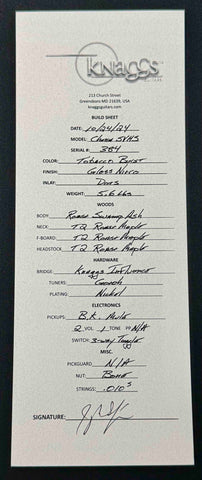 Knaggs
GUITARS
213 Church Street
Greensboro MD 21639, USA
knaggsguitars.com
BUILD SHEET
DATE: 10/24/24
MODEL: Choptank SYHS
SERIAL #: 384
COLOR: Tobacco Burst
FINISH: Gloss Nitro
INLAY: Dots
WEIGHT: 5.6 Lbs
WOODS
BODY: Roast Swamp Ash
NECK: T2 Roast Maple
F-BOARD: T2 Roast Maple
HEADSTOCK: T2 Roast Maple
HARDWARE
BRIDGE: Knaggs Influence
TUNERS: Gotoh
PLATING: Nickel
ELECTRONICS
PICKUPS: B.K. Mule
2 VOL. 1 TONE PP N/A
SWITCH: 3-way Toggle
MISC.
PICKGUARD: N/A
NUT: Bone
STRINGS: .010s
SIGNATURE: